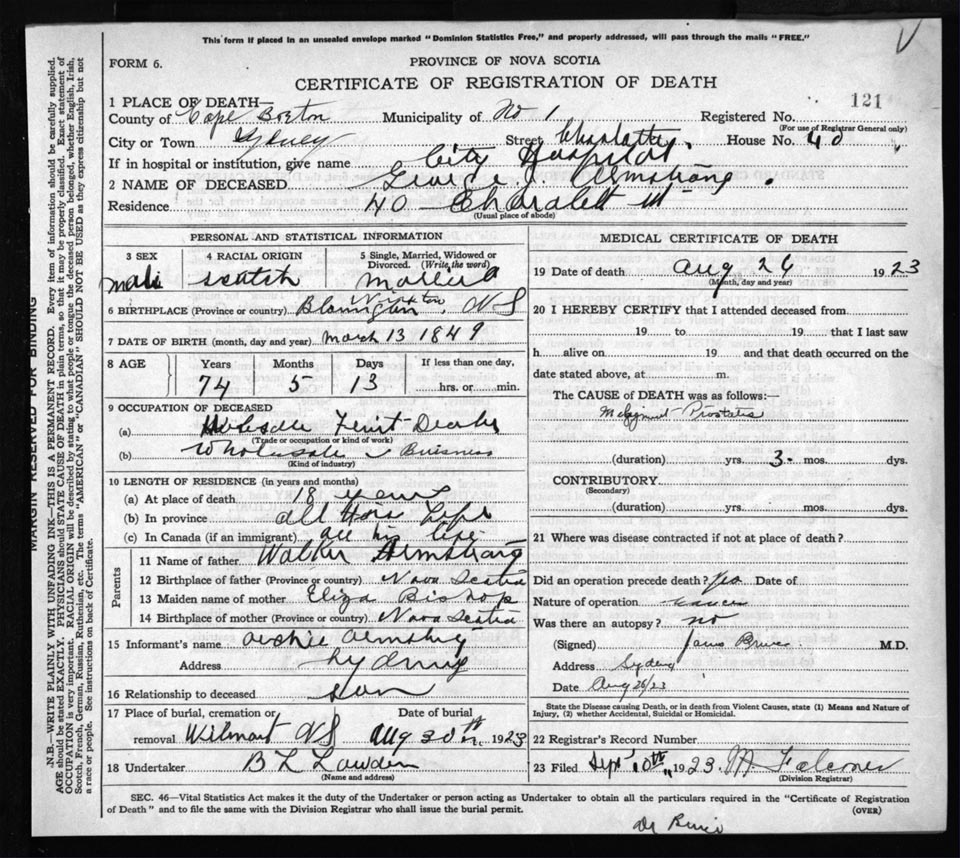 This form if placed in an unsealed envelope marked "Dominion Statistics Free," and properly addressed, will pass through the mails "FREE."
FORM 6.
PROVINCE OF NOVA SCOTIA
CERTIFICATE OF REGISTRATION OF DEATH
121
1 PLACE OF DEATH—
County of Cape Breton Municipality of No 1 Registered No.
(For use of Registrar General only)
City or Town Sydney Street Charlotte House No. 40
If in hospital or institution, give name City Hospital
2 NAME OF DECEASED George Armstrong
Residence 40 Charlotte st
(Usual place of abode)
PERSONAL AND STATISTICAL INFORMATION
3 SEX 4 RACIAL ORIGIN 5 Single, Married, Widowed or Divorced. (Write the word)
male scotch married
6 BIRTHPLACE (Province or country) NS
7 DATE OF BIRTH (month, day and year) March 13 1849
8 AGE Years Months Days If less than one day,
74 5 13 hrs. or min.
9 OCCUPATION OF DECEASED
(a) Fruit Dealer
(Trade or occupation or kind of work)
(b) Wholesale Buisness
(Kind of industry)
10 LENGTH OF RESIDENCE (in years and months)
(a) At place of death 18 years
(b) In province all His Life
(c) In Canada (if an immigrant) all his life
Parents
11 Name of father Walter Armstrong
12 Birthplace of father (Province or country) Nova Scotia
13 Maiden name of mother Eliza Bishop
14 Birthplace of mother (Province or country) Nova Scotia
15 Informant's name Archie Armstrong
Address Sydney
16 Relationship to deceased son
17 Place of burial, cremation or removal Wilmont NS Date of burial Aug 30th 1923
18 Undertaker B L
(Name and address)
MEDICAL CERTIFICATE OF DEATH
19 Date of death Aug 26 1923
(Month, day and year)
20 I HEREBY CERTIFY that I attended deceased from
19 to 19 that I last saw
h alive on 19 and that death occurred on the
date stated above, at m.
The CAUSE of DEATH was as follows:
(duration) yrs. 3 mos. dys.
CONTRIBUTORY
(Secondary)
(duration) yrs. mos. dys.
21 Where was disease contracted if not at place of death?
Did an operation precede death? Yes Date of
Nature of operation
Was there an autopsy? no
(Signed) M.D.
Address Sydney
Date Aug 26/23
State the Disease causing Death, or in death from Violent Causes, state (1) Means and Nature of Injury, (2) whether Accidental, Suicidal or Homicidal.
22 Registrar's Record Number
23 Filed Sept 10th 1923 Falconer
(Division Registrar)
SEC. 46—Vital Statistics Act makes it the duty of the Undertaker or person acting as Undertaker to obtain all the particulars required in the "Certificate of Registration
of Death" and to file the same with the Division Registrar who shall issue the burial permit. (OVER)
MARGIN RESERVED FOR BINDING
N.B.—WRITE PLAINLY WITH UNFADING INK—THIS IS A PERMANENT RECORD. Every item of information should be carefully supplied.
AGE should be stated EXACTLY. PHYSICIANS should STATE CAUSE OF DEATH in plain terms, so that it may be properly classified. Exact statement of
OCCUPATION is very important. RACIAL ORIGIN will be described by stating to what people or tongue the deceased person belonged, whether English, Irish,
Scotch, French, German, Russian, Ruthenian, etc. The terms "AMERICAN" or "CANADIAN" SHOULD NOT BE USED as they express citizenship but not
a race or people. See instructions on back of Certificate.